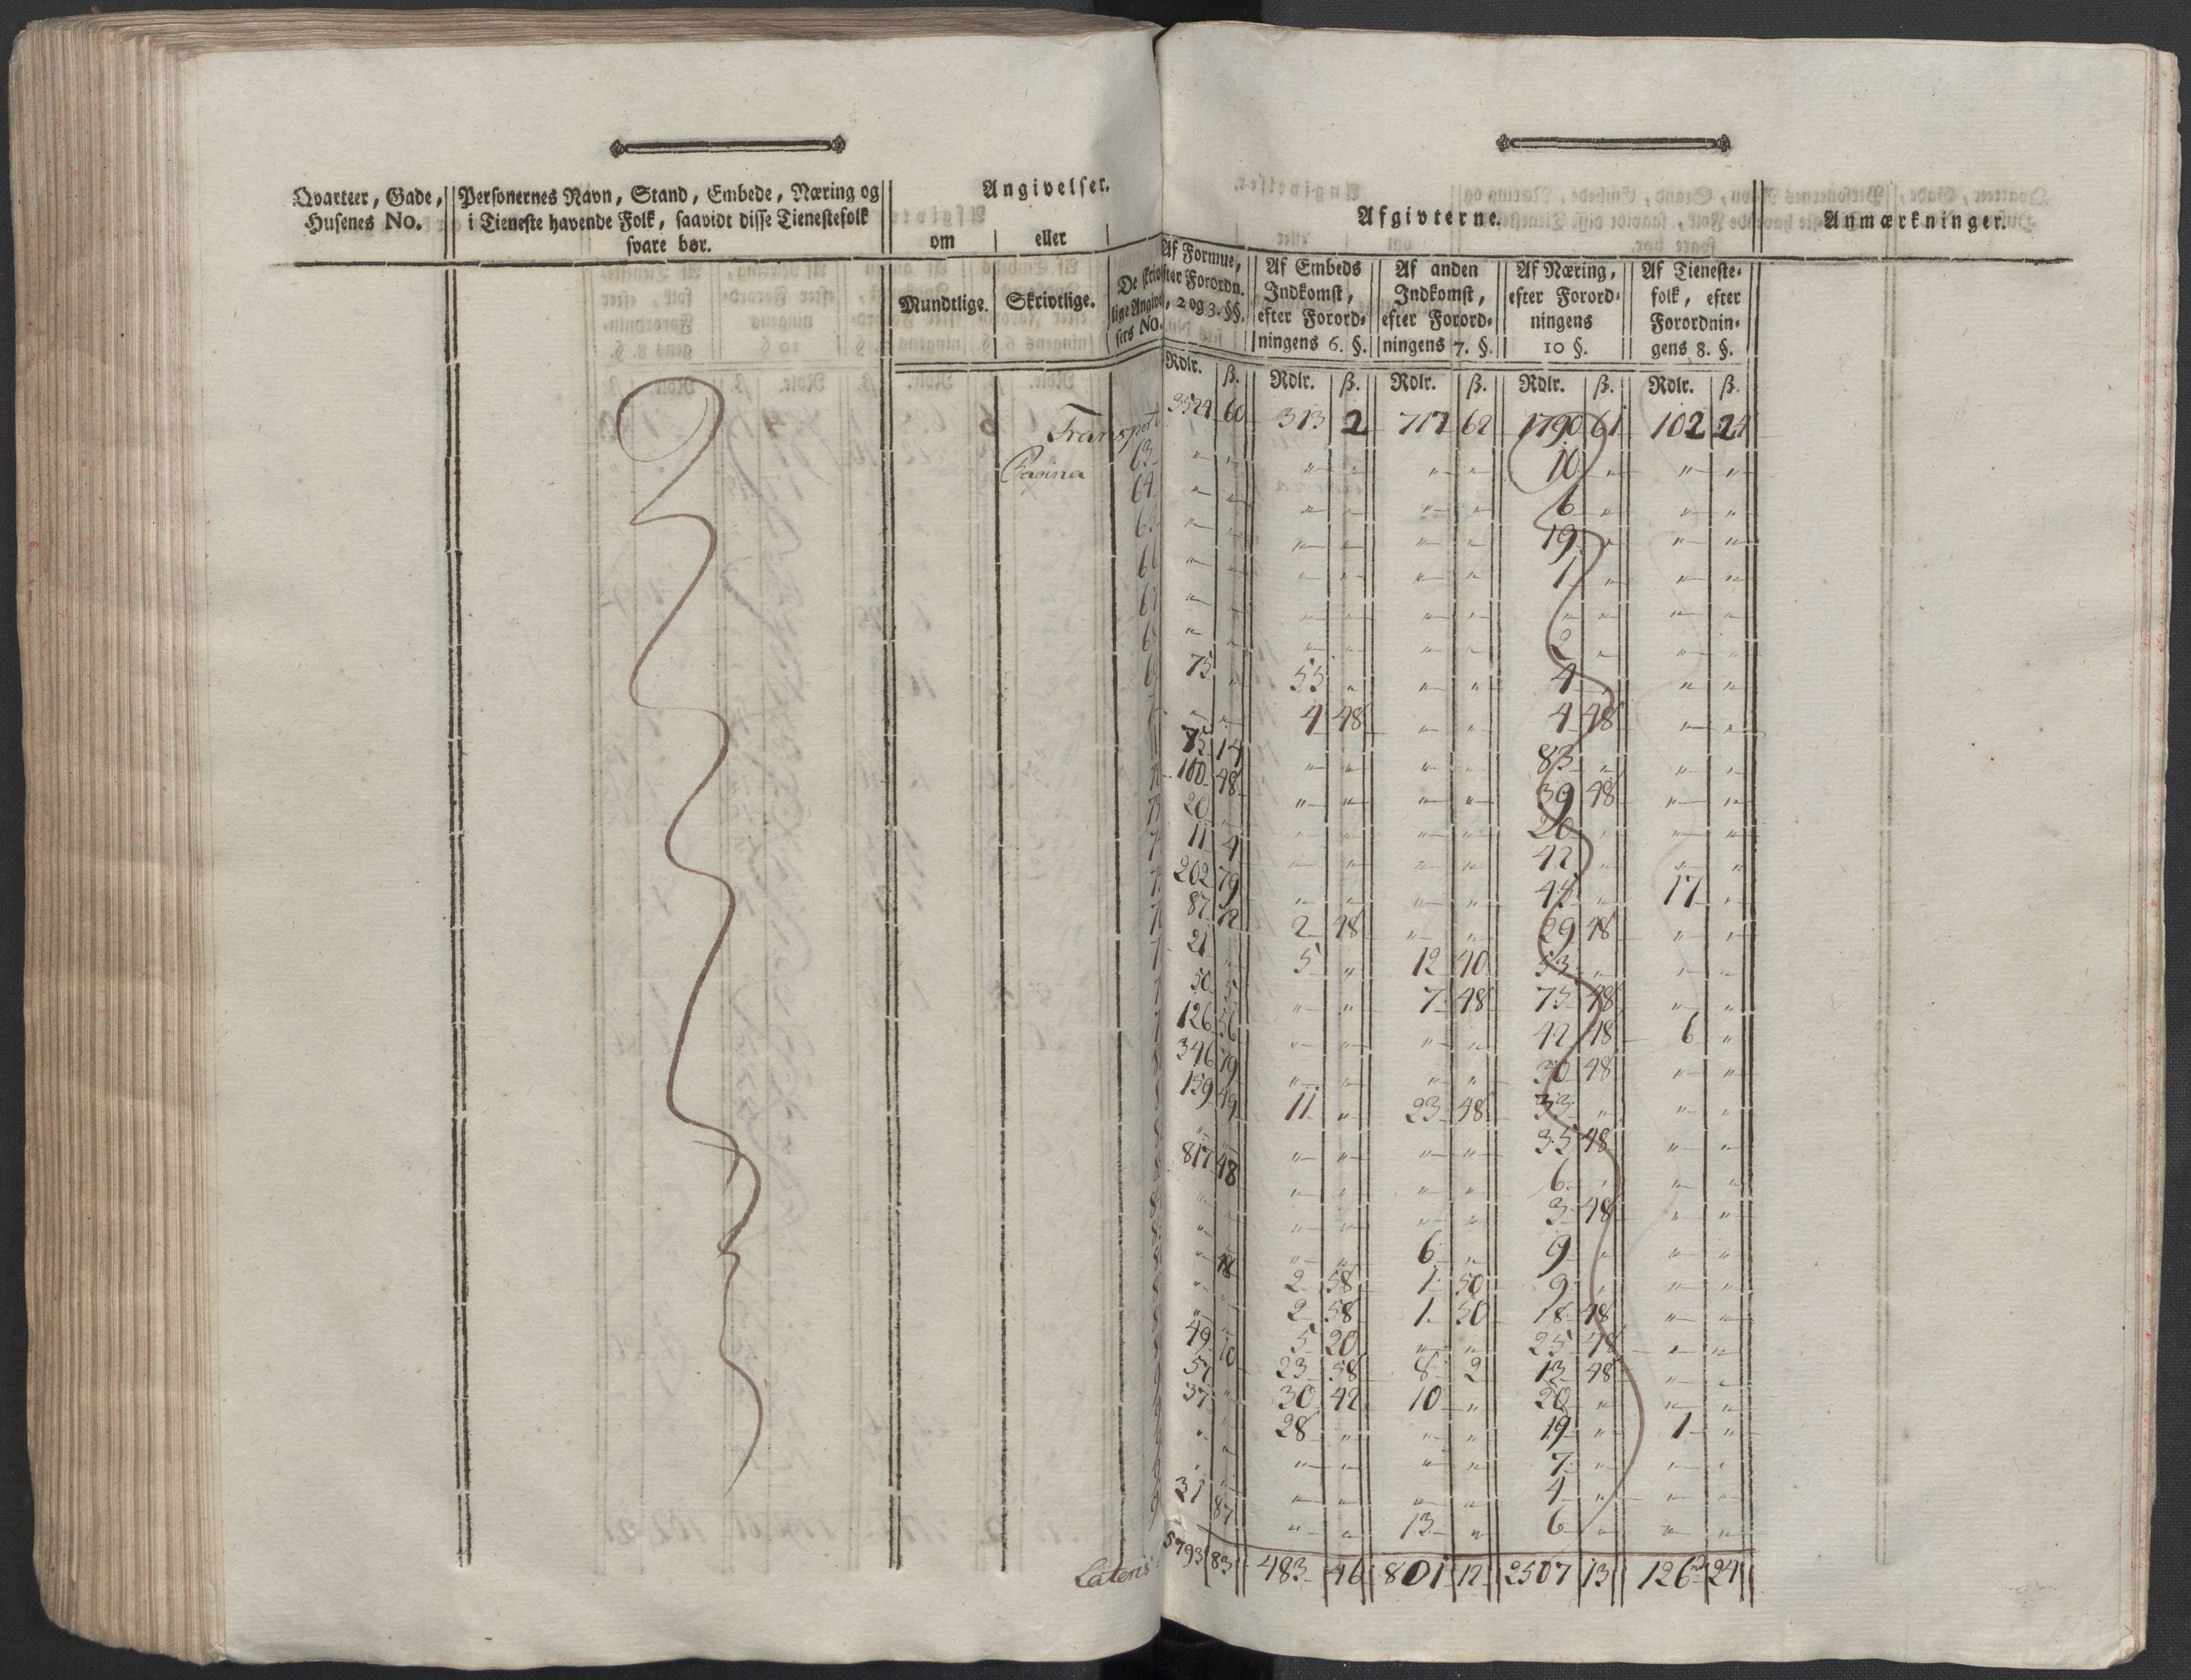 Qvarteer, Gade, Husenes No.
Personernes Navn, Stand, Embede, Næring og i Tieneste havende Folk, saavidt disse Tienestefolk svare bør.
Angivelser.
om | eller
Mundtlige. | Skrivtlige.
De skrivtlige Angivelsers No.
Afgivterne.
Anmærkninger.
Af Formue, efter Forordn. 2 og 3. §§.
Af Embeds Indkomst, efter Forordningens 6. §.
Af anden Indkomst, efter Forordningens 7. §.
Af Næring, efter Forordningens 10 §.
Af Tienestefolk, efter Forordningens 8. §.
Rdlr. | ß. | Rdlr. | ß. | Rdlr. | ß. | Rdlr. | ß. | Rdlr. | ß.
Transport 3524 60 313 2 717 62 1790 61 102 24
Pagina 63 " " " " " " 10 " " "
64 " " " " " " 6 " " "
65 " " " " " " 19 " " "
66 " " " " " " 1 " " "
67 " " " " " " " " " "
" " " " " " 2 " " "
75 " 55 " " " 4 " " "
" " 4 48 " " 4 48 " "
75 14 " " " " 83 " " "
100 48 " " " " 39 48 " "
20 " " " " " 20 " " "
11 4 " " " " 42 " " "
202 79 " " " " 44 " 17 "
87 12 2 48 " " 29 48 " "
21 " 5 " 12 40 53 " " "
50 5 " " 7 48 75 48 " "
126 56 " " " " 42 48 6 "
346 79 " " " " 30 48 " "
159 49 11 " 23 48 33 " " "
" " " " " " 35 48 " "
817 48 " " " " 6 " " "
" " " " " " 3 48 " "
" " " " 6 " 9 " " "
" 48 2 58 1 50 9 " " "
" " 2 58 1 50 18 48 " "
49 10 5 20 " " 25 48 " "
57 " 23 58 8 2 13 48 " "
37 " 30 42 10 " 20 " " "
" " 28 " " " 19 " 1 "
" " " " " " 7 " " "
" " " " " " 4 " " "
31 87 " " 13 " 6 " " "
Lateris 5793 83 483 46 801 12 2507 13 126 24